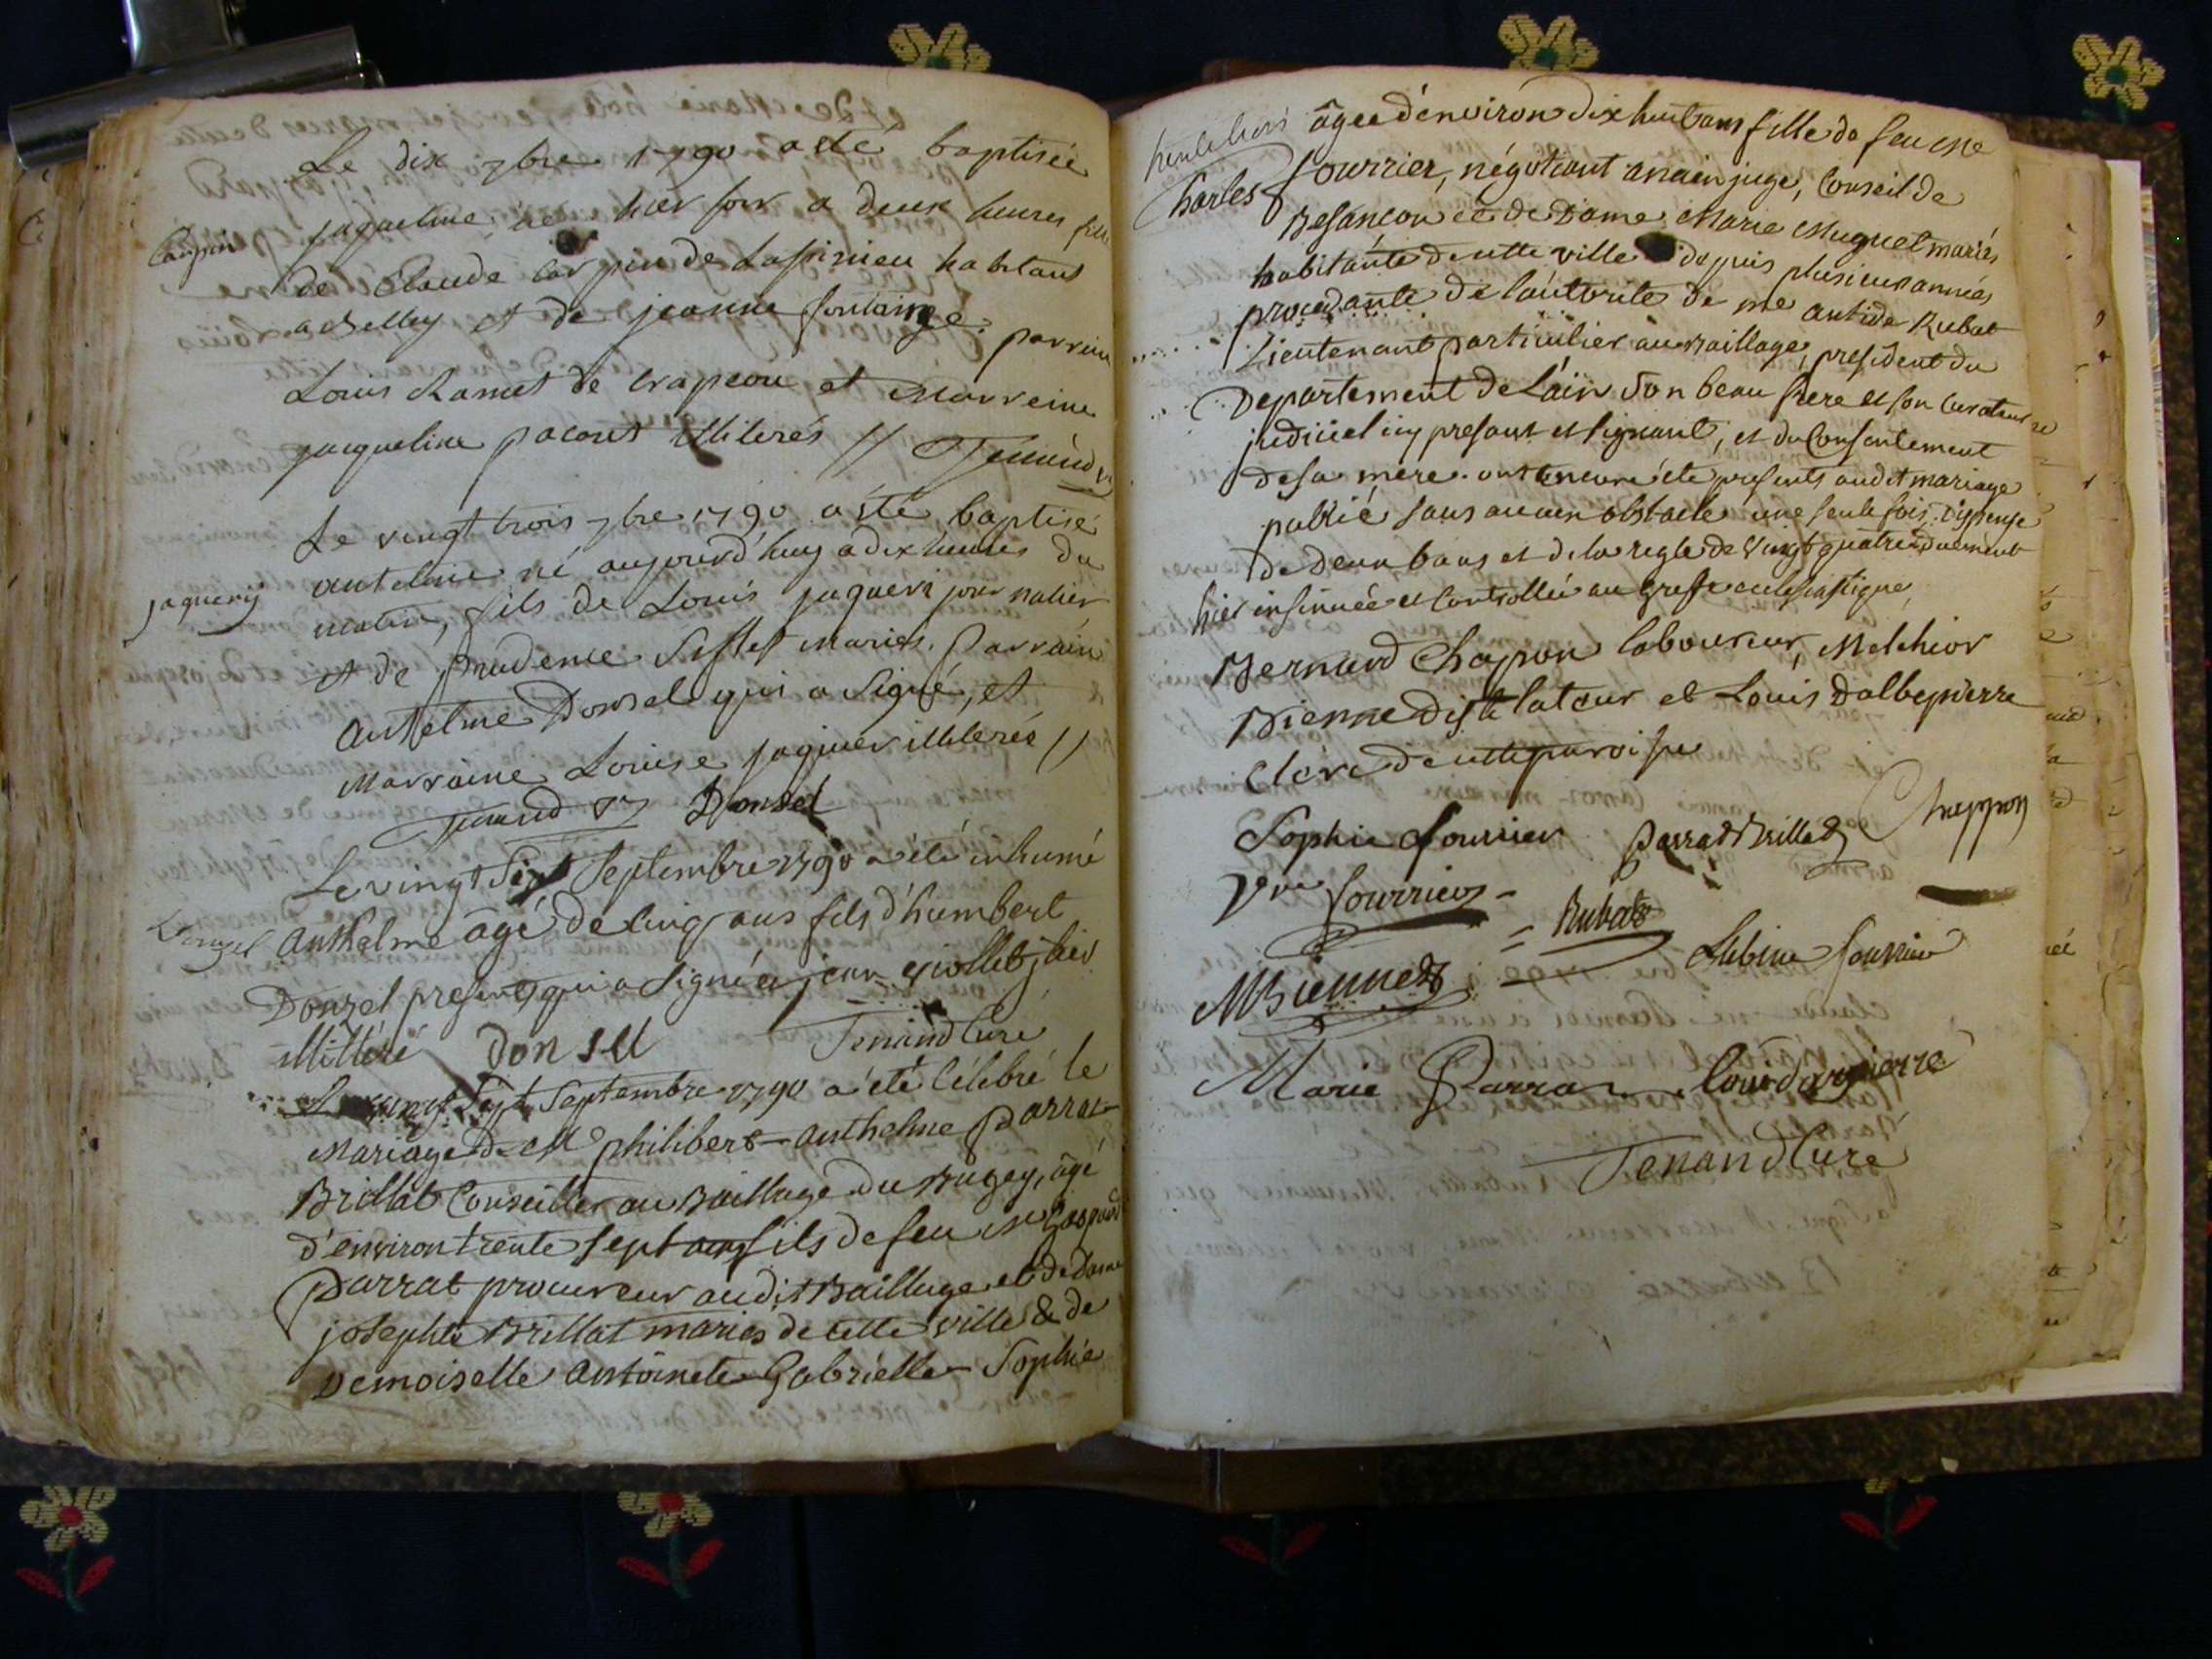 Le dix 7bre 1790 a eté baptisée
jaqueline née hier soir a deux heures fille
Carpin
de Claude Carpin de Lassinieu habitant
a Belley et de jeanne fontaine. parrein
Louis Ramet de Crapeou et Marreine
jacqueline pacout illiterés // Tenand
Le vingt trois 7bre 1790 a eté baptisé
antelme né aujourd'huy a dix heures du
jaquery
matin, fils de Louis jaqueri journalier
et de prudence Siflet mariés. Parrain
Anthelme Donsel qui a Signé, et
Marraine Louise jaquier illiterée //
Tenand Donzel
Le vingt Sept Septembre 1790 a été inhumé
Donzel
Anthelme âgé de cinq ans fils d'humbert
Donzel present, qui a Signé et jean giollet hier
illittéré donsel Tenand Curé
Le vingt Sept Septembre 1790 a été célébré le
Mariage de Me philibert anthelme Parrat
Brillat Conseiller au Baillage du Bugey, âgé
d'environ trente sept ans fils de feu Me Gaspard
Parrat procureur audit Baillage et de dame
josephte Brillat mariés de cette ville & de
Demoiselle Antoinete Gabrielle Sophie
Charles
âgée d'environ dix huit ans fille de feu Me
fourrier, négotiant ancien juge, Conseil de
Besançon et de Dame Marie Muguet mariés
habitante de cette ville depuis plusieurs années
procedante de l'autorité de me antide Rubat
Lieutenant particulier au Baillage, president du
Departement de L'ain son beau frere et son curateur
judiciel icy present et signant, et du Consentement
de sa mère. ont encore été presents audit mariage
publié sans aucun obstacle une seule fois, Dispense
de deux bans et de la regle de vingt quatre duement
hier insinuée et Controllée au Greffe ecclesiastique,
Bernard Chapon laboureur, Melchior
Bienne distilateur et Louis Dalbepierre
Clerc de cette paroisse
Sophie fourrier Parrat Brillat Chappon
Vve fourrier Rubat
MBienne fourrier
Marie Parra Louis
Tenand Curé